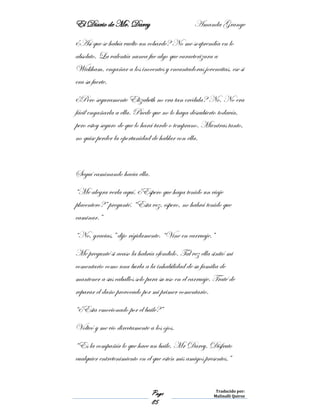 El Diario de Mr. Darcy Amanda Grange
¿Así que se había vuelto un cobarde? No me sorprendía en lo
absoluto. La valentía nunca fue algo que caracterizara a
Wickham, engañar a los inocentes y encantadoras jovencitas, ese sí
era su fuerte.
¿Pero seguramente Elizabeth no era tan crédula? No. No era
fácil engañarla a ella. Puede que no lo haya descubierto todavía,
pero estoy seguro de que lo hará tarde o temprano. Mientras tanto,
no quise perder la oportunidad de hablar con ella.
Seguí caminando hacia ella.
“Me alegra verla aquí, ¿Espero que haya tenido un viaje
placentero?” pregunté. “Esta vez, espero, no habrá tenido que
caminar.”
“No, gracias,” dijo rígidamente. “Vine en carruaje.”
Me pregunté si acaso la habría ofendido. Tal vez ella sintió mi
comentario como una burla a la inhabilidad de su familia de
mantener a sus caballos solo para su uso en el carruaje. Trate de
reparar el daño provocado por mi primer comentario.
“¿Esta emocionada por el baile?”
Volteó y me vio directamente a los ojos.
“Es la compañía lo que hace un baile, Mr Darcy. Disfruto
cualquier entretenimiento en el que estén mis amigos presentes.”
Page
85
Traducido por:
Malinalli Quiroz